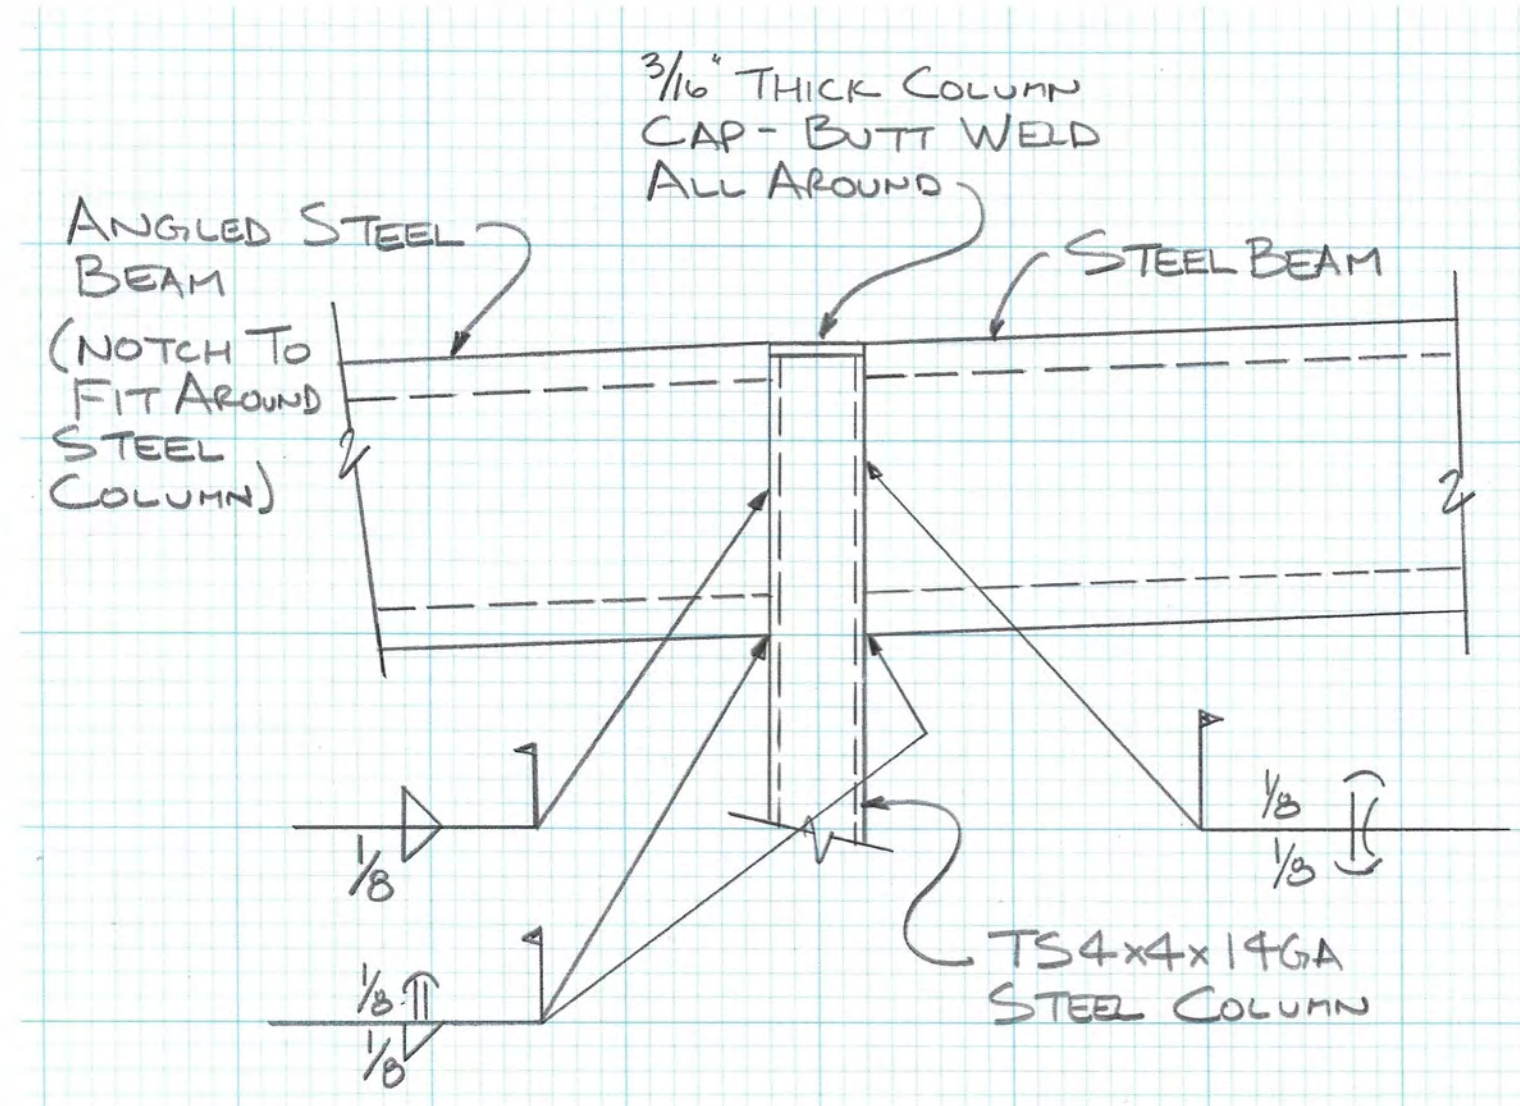 3/16" THICK COLUMN
CAP - BUTT WELD
ALL AROUND
ANGLED STEEL
BEAM
(NOTCH TO
FIT AROUND
STEEL
COLUMN)
STEEL BEAM
1/8
1/8
1/8
1/8
1/8
TS 4x4x14GA
STEEL COLUMN